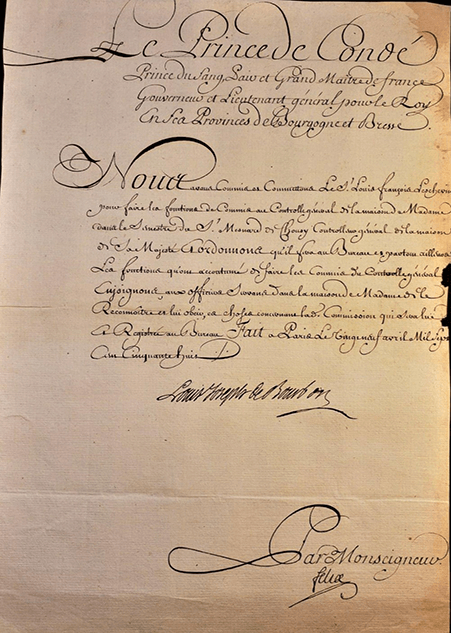 Le Prince de Condé
Prince du Sang, Pair et Grand Maître de france
Gouverneur et Lieutenant général pour le Roy
En Ses Provinces de Bourgogne et Bresse.
Nous avons Commis et Commettons Le Sr. Louis françois
pour faire les fonctions de Commis au Controlle général de la maison de Madame
dans le Semestre du Sr. Mesnard de Chouzy Controlleur général de la maison
de Sa Majesté Lordonnons qu'il fasse au Bureau et partout ailleurs
Les fonctions qu'ont accoutumé de faire les Commis du Controlle général
Enjoignons aux officiers Servans dans la maison de Madame de le
Reconnoitre et lui obeir, es choses concernant lad. Commission qui sera
Registrée au Bureau Fait a Paris Le avril Mil Sept
Cinquante huit ./.
Louis Joseph de Bourbon
Par Monseigneur.